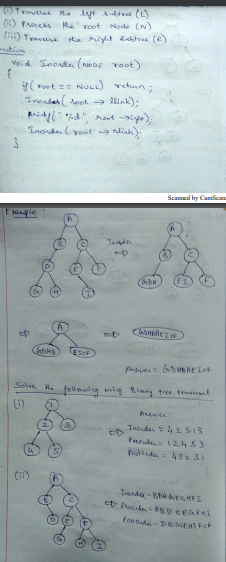 (i) Traverse the left subtree (L)
(ii) Process the root Node (N)
(iii) Traverse the right subtree (R)
nction
void Inorder (NODE root)
{
if (root == NULL) return;
Inorder (root → llink);
printf ("%d", root → info);
Inorder (root → rlink);
}
Scanned by CamScan
Example:
A
B C
D E F
G H I
Inorder
⇒
A
B C
GDH EI F
⇒
A
GDHB EICF
⇒
GDHBAEICF
Answer = GDHBAEICF
Solve the following using Binary tree traversal
(i)
1
2 3
4 5
Answer:
⇒ Inorder = 4 2 5 1 3
Preorder = 1 2 4 5 3
Postorder = 4 5 2 3 1
(ii)
A
B C
D E F
G H I
Inorder -
⇒ Preorder =
Postorder -